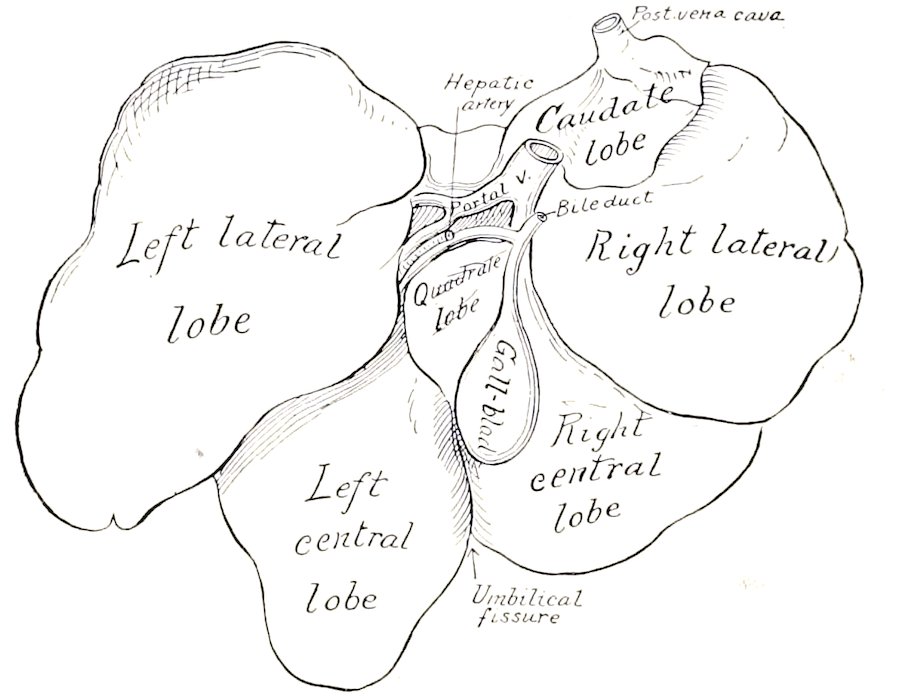 Post. vena cava
Hepatic
artery
Caudate
lobe
Portal V.
Bile duct
Left lateral
lobe
Quadrate
lobe
Right lateral
lobe
Gall-blad
Right
central
lobe
Left
central
lobe
Umbilical
fissure